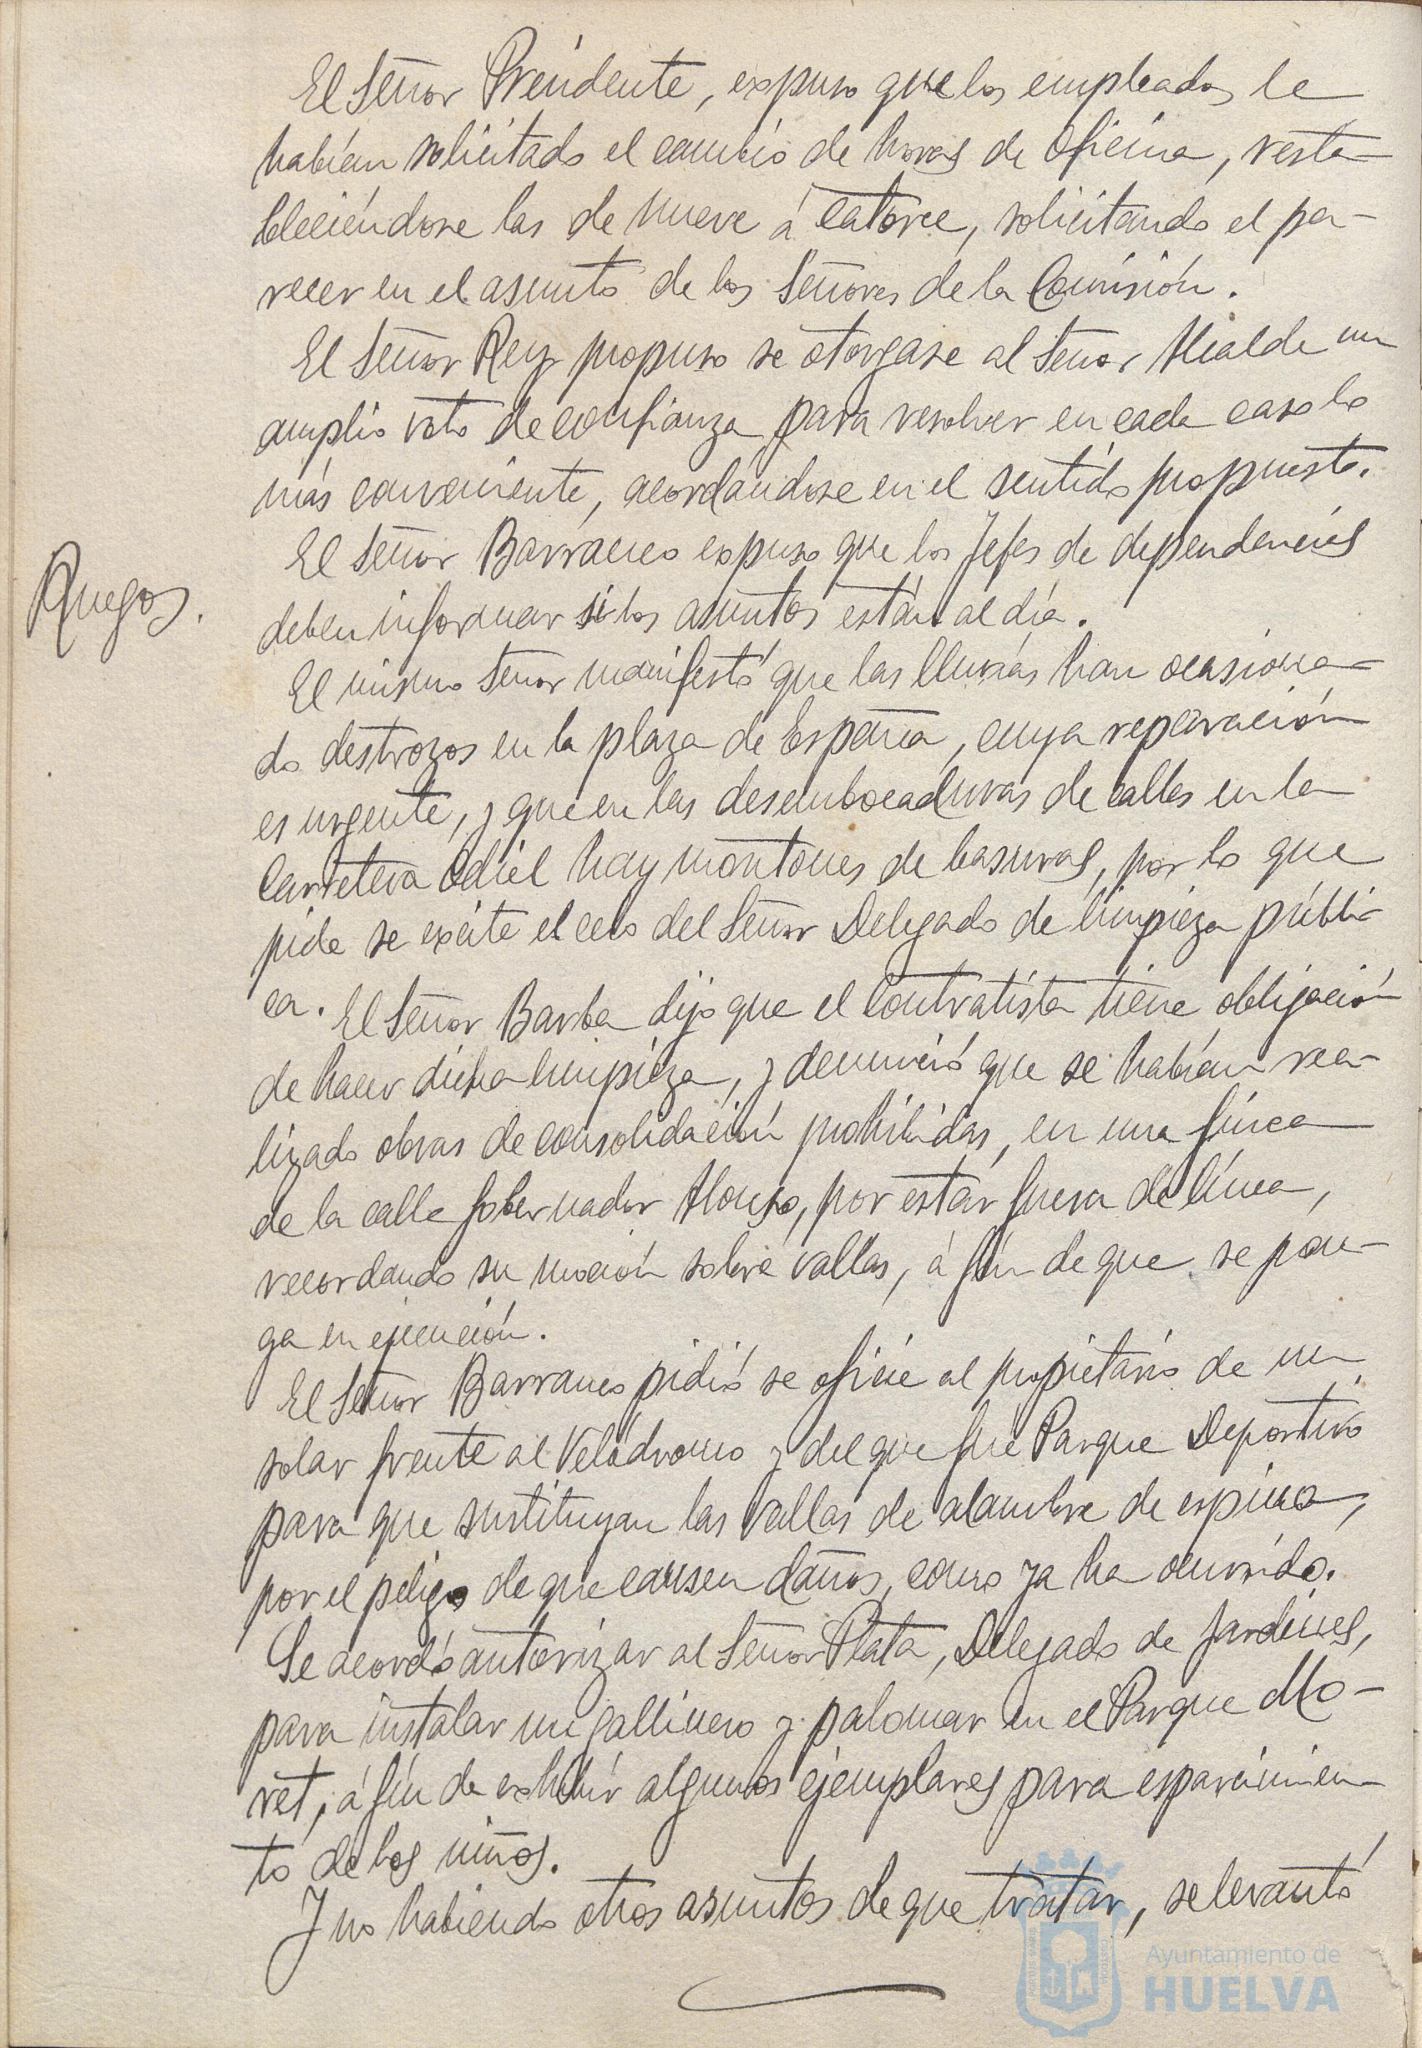 El Señor Presidente, expuso que los empleados le
habían solicitado el cambio de horas de oficina, resta-
bleciéndose las de nueve á catorce, solicitando el pa-
recer en el asunto de los Señores de la Comisión.
El Señor Rey propuso se otorgase al Señor Alcalde un
amplio voto de confianza para resolver en cada caso lo
más conveniente, acordándose en el sentido propuesto.
Ruegos.
El Señor Barranco expuso que los Jefes de dependencias
deben informar si los asuntos están al día.
El mismo Señor manifestó que las lluvias han ocasiona-
do destrozos en la plaza de España, cuya reparación
es urgente, y que en las desembocaduras de calles en la
Carretera Odiel hay montones de basuras, por lo que
pide se excite el celo del Señor Delegado de limpieza públi-
ca. El Señor Barba dijo que el contratista tiene obligación
de hacer dicha limpieza, y denunció que se habían rea-
lizado obras de consolidación prohibidas, en una finca
de la calle Gobernador Alonso, por estar fuera de línea,
recordando su moción sobre vallas, á fin de que se pon-
ga en ejecución.
El Señor Barranco pidió se oficie al propietario de un
solar frente al Velódromo y del que fué Parque Deportivo
para que sustituyan las vallas de alambre de espino,
por el peligro de que causen daños, como ya ha ocurrido.
Se acordó autorizar al Señor Plata, Delegado de Jardines,
para instalar un gallinero y palomar en el Parque Mo-
ret, á fin de exhibir algunos ejemplares para esparcimien-
to de los niños.
Y no habiendo otros asuntos de que tratar, se levantó
Ayuntamiento de
HUELVA